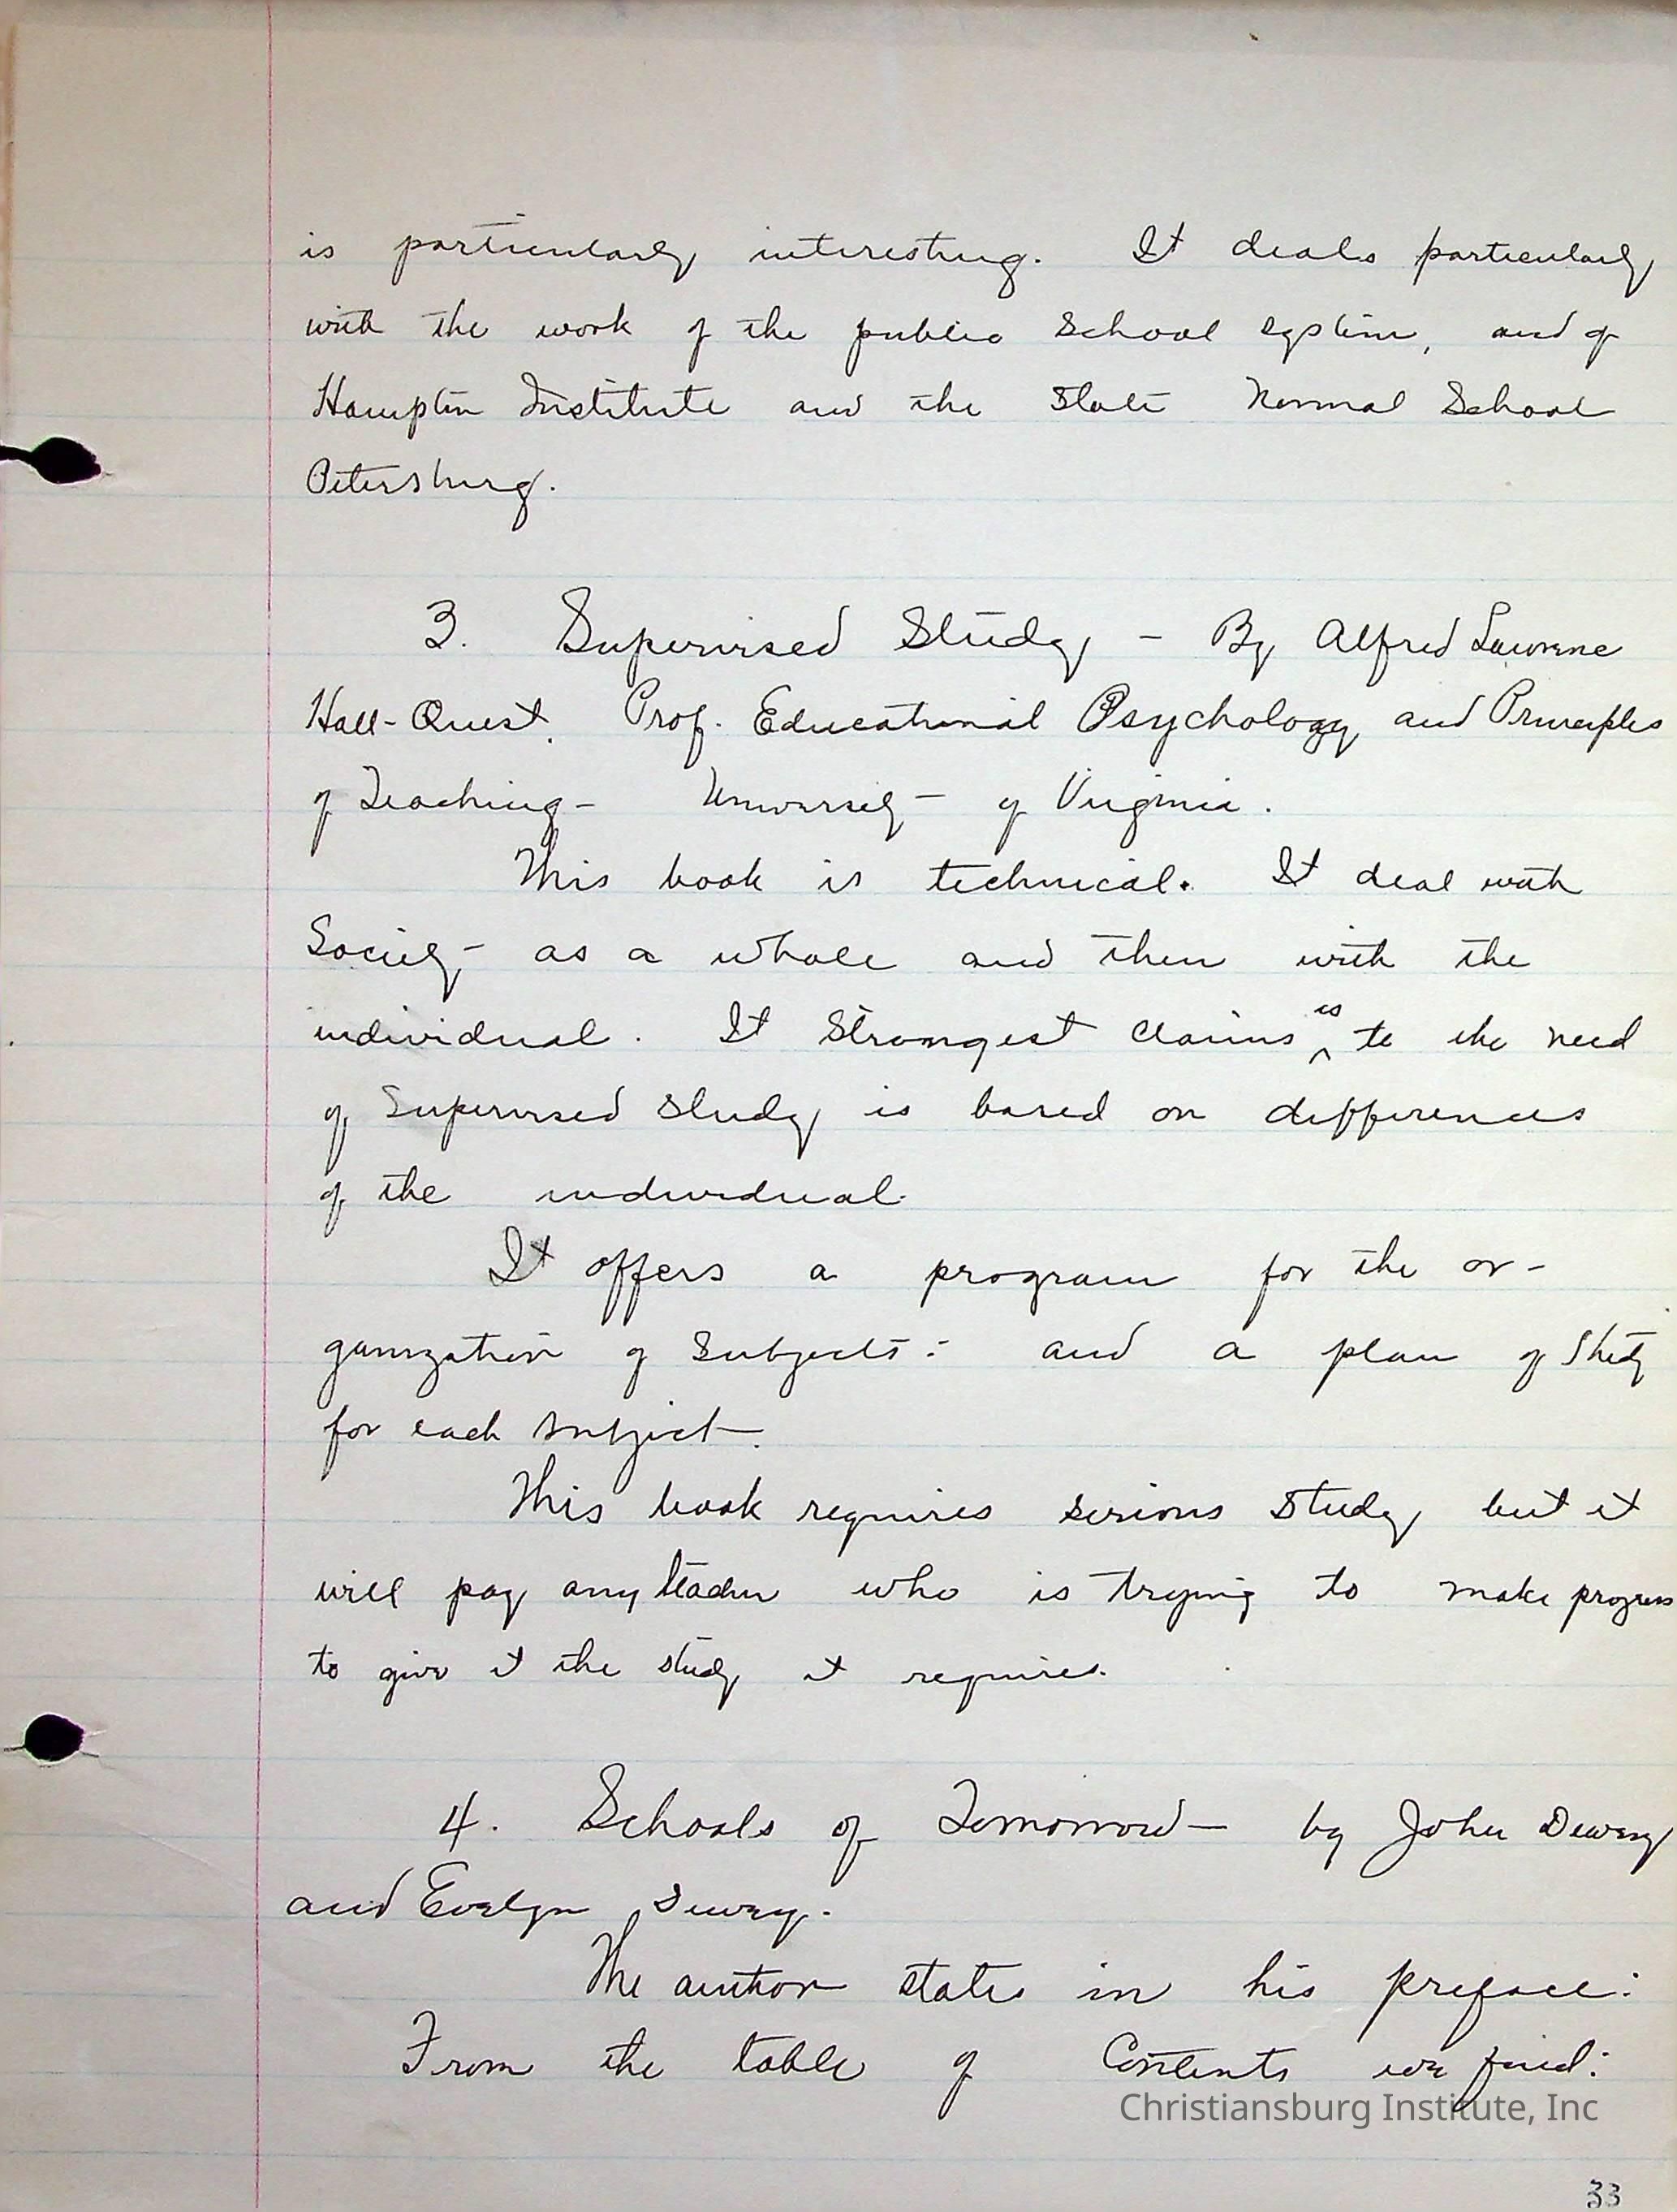 is particularly interesting. It deals particularly
with the work of the public School system, and of
Hampton Institute and the State Normal School
Petersburg.
3. Supervised Study - By Alfred Lawrence
Hall-Quest. Prof. Educational Psychology and Principles
of Teaching - University - of Virginia.
This book is technical. It deal with
Society - as a whole and then with the
individual. It Strongest claims is to the need
of Supervised study is based on differences
of the individual.
It offers a program for the or-
ganization of Subjects: and a plan of Study
for each subject.
This book requires serious study but it
will pay any teacher who is trying to make progress
to give it the study it requires.
4. Schools of Tomorrow - by John Dewey
and Evelyn Dewey.
The author states in his preface:
From the table of Contents we find:
Christiansburg Institute, Inc
33